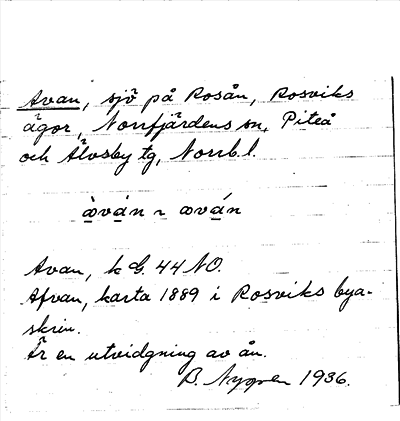 Avan, sjö på Rosån, Rosviks
ägor, Norrfjärdens sn, Piteå
och Älvsby tg, Norrb. l.
æ̀vá̱n ~ ævá̱n
Avan, k G. 44 NO.
Afvan, karta 1889 i Rosviks bya-
skrin.
Är en utvidgning av ån.
B. Nygren 1936.